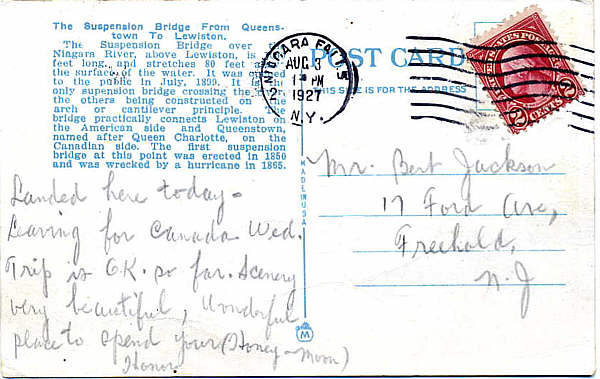 The Suspension Bridge From Queens-
town To Lewiston.
The Suspension Bridge over the
Niagara River, above Lewiston, is
feet long, and stretches 80 feet
the surface of the water. It was
to the public in July, 1899. It is
only supension bridge crossing the
the others being constructed on the
arch or cantilever principle. The
bridge practically connects Lewiston on
the American side and Queenstown,
named after Queen Charlotte, on the
Canadian side. The first suspension
bridge at this point was erected in 1850
and was wrecked by a hurricane in 1865.
Landed here today -
Leaving for Canada Wed.
Trip is O.K. so far. Scenery
very beautiful, Wonderful
place to spend your (Honey-Moon)
Honor
MADE IN USA
M
NIAGARA FALLS
AUG 3
1 PM
1927
N.Y.
2
POST CARD
THIS SIDE IS FOR THE ADDRESS
UNITED STATES POSTAGE
2 CENTS 2
Mr. Bert Jackson
17 Ford Ave,
Freehold,
N.J